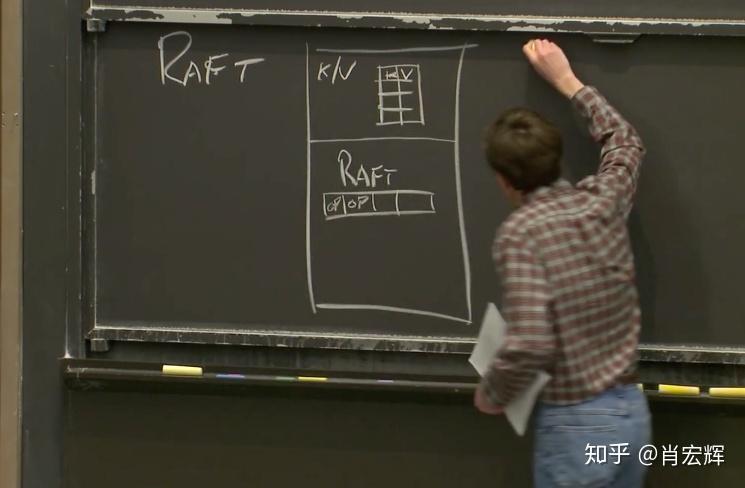 RAFT
K/V
K V
RAFT
OP OP
知乎 @肖宏辉